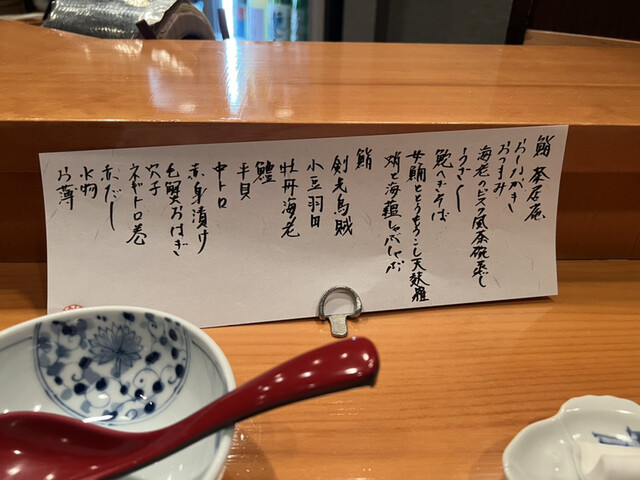 鮨 茶居庵
おしながき
おつまみ
海老のビスク風茶碗蒸し
うざく
鮑へぎそば
女鯒ととうもろこし天麩羅
蛸と海蘊しゃぶしゃぶ
鮨
剣先烏賊
小豆羽田
牡丹海老
鱧
平貝
中トロ
赤身漬け
毛蟹おはぎ
穴子
ネギトロ巻
赤だし
水物
お薄